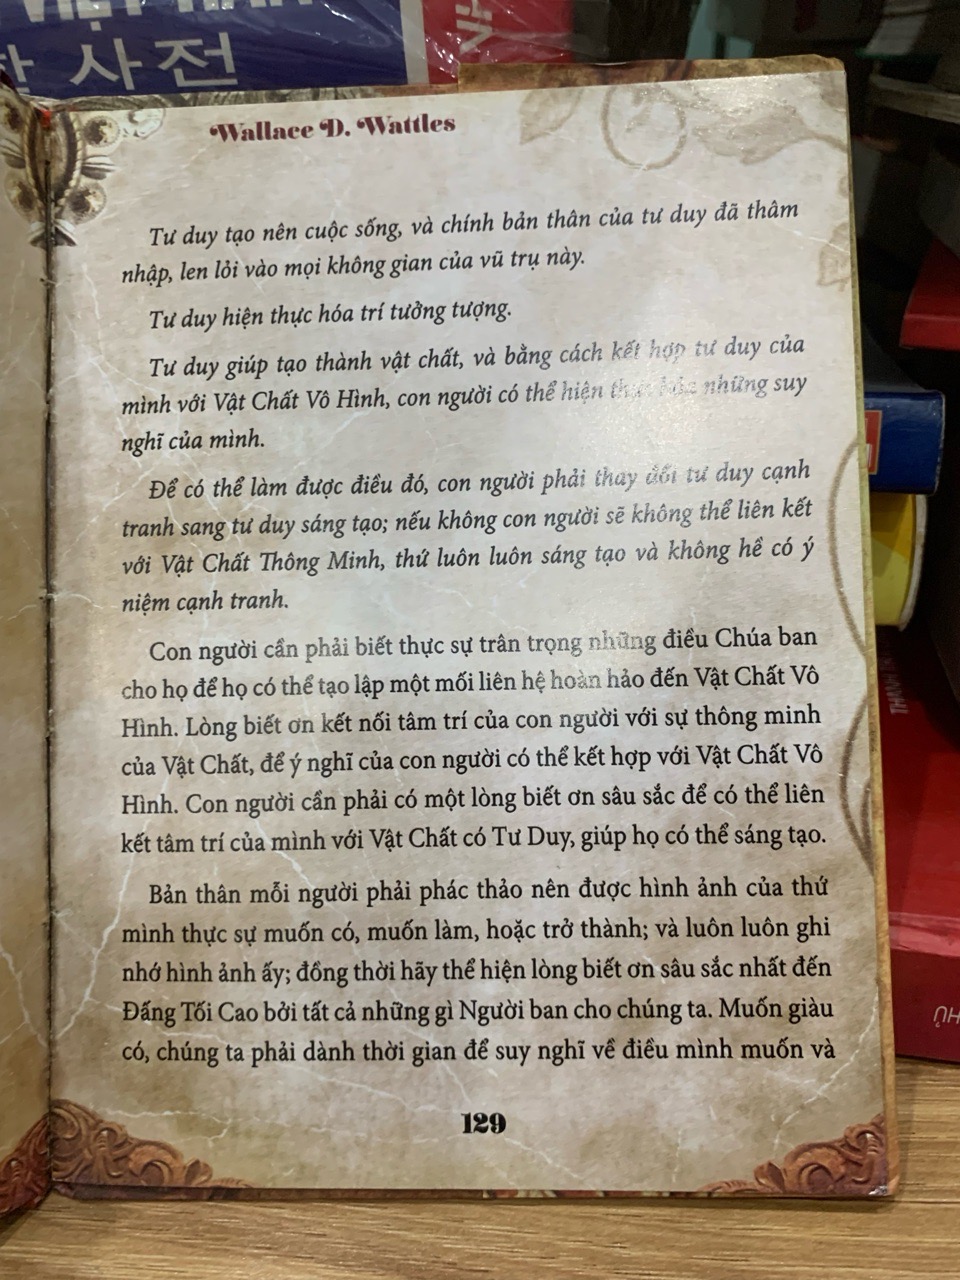 사전
Wallace D. Wattles
Tư duy tạo nên cuộc sống, và chính bản thân của tư duy đã thâm
nhập, len lỏi vào mọi không gian của vũ trụ này.
Tư duy hiện thực hóa trí tưởng tượng.
Tư duy giúp tạo thành vật chất, và bằng cách kết hợp tư duy của
mình với Vật Chất Vô Hình, con người có thể hiện thực hóa những suy
nghĩ của mình.
Để có thể làm được điều đó, con người phải thay đổi tư duy cạnh
tranh sang tư duy sáng tạo; nếu không con người sẽ không thể liên kết
với Vật Chất Thông Minh, thứ luôn luôn sáng tạo và không hề có ý
niệm cạnh tranh.
Con người cần phải biết thực sự trân trọng những điều Chúa ban
cho họ để họ có thể tạo lập một mối liên hệ hoàn hảo đến Vật Chất Vô
Hình. Lòng biết ơn kết nối tâm trí của con người với sự thông minh
của Vật Chất, để ý nghĩ của con người có thể kết hợp với Vật Chất Vô
Hình. Con người cần phải có một lòng biết ơn sâu sắc để có thể liên
kết tâm trí của mình với Vật Chất có Tư Duy, giúp họ có thể sáng tạo.
Bản thân mỗi người phải phác thảo nên được hình ảnh của thứ
mình thực sự muốn có, muốn làm, hoặc trở thành; và luôn luôn ghi
nhớ hình ảnh ấy; đồng thời hãy thể hiện lòng biết ơn sâu sắc nhất đến
Đấng Tối Cao bởi tất cả những gì Người ban cho chúng ta. Muốn giàu
có, chúng ta phải dành thời gian để suy nghĩ về điều mình muốn và
129